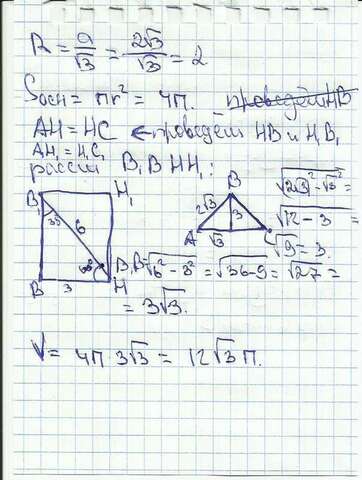 R = a/√3 = 2√3/√3 = 2
Sосн = πr² = 4π.
AH = HC ← проведём HB и H₁B₁
AH₁ = H₁C₁
рассм B₁BHH₁:
B₁ H₁
30
6
60°
B 3 H
B
2√3 3
A √3
√(2√3)² - √3² =
√12 - 3 =
√9 = 3.
B₁B = √6² - 3² = √36 - 9 = √27 =
= 3√3.
V = 4π · 3√3 = 12√3 π.